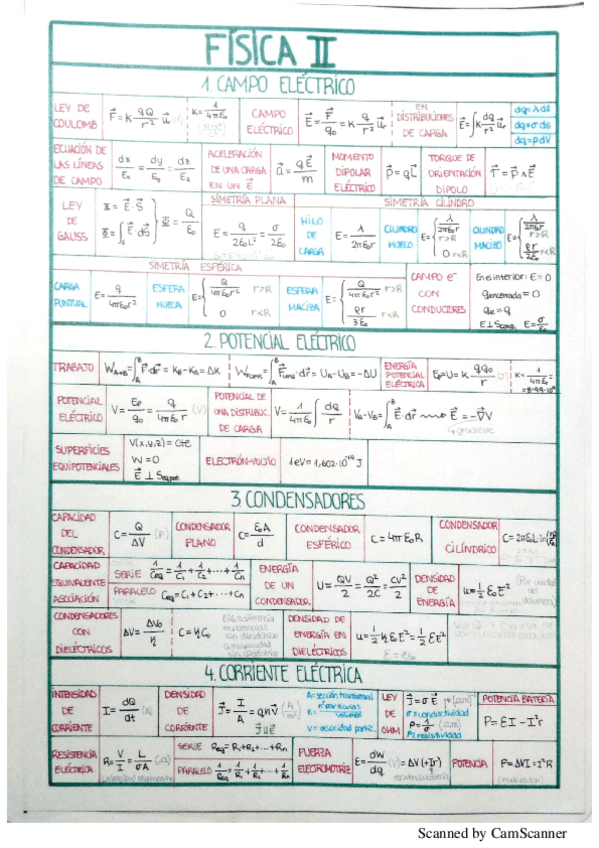 FÍSICA II
1. CAMPO ELÉCTRICO
LEY DE COULOMB F⃗ = K qQ/r² u⃗r K = 1/4πε₀
CAMPO ELÉCTRICO E⃗ = F⃗/q₀ = K q/r² u⃗r
EN DISTRIBUCIONES DE CARGA E⃗ = ∫K dq/r² u⃗r
dq = λdl
dq = σds
dq = ρdV
ECUACIÓN DE LAS LÍNEAS DE CAMPO dx/Ex = dy/Ey = dz/Ez
ACELERACIÓN DE UNA CARGA EN UN E⃗ a⃗ = qE⃗/m
MOMENTO DIPOLAR ELÉCTRICO p⃗ = qL⃗
TORQUE DE ORIENTACIÓN DIPOLO τ⃗ = p⃗ ∧ E⃗
LEY DE GAUSS Φ = E⃗·S⃗ Φ = ∫s E⃗ dS⃗ } Φ = Q/ε₀
SIMETRÍA PLANA
E = q/2ε₀L² = σ/2ε₀
SIMETRÍA CILINDRO
HILO DE CARGA E = λ/2πε₀r
CILINDRO HUECO E = { λ/2πε₀r r>R
0 r<R
CILINDRO MACIZO E = { λ/2πε₀r r>R
ρr/2ε₀ r<R
SIMETRÍA ESFÉRICA
CARGA PUNTUAL E = q/4πε₀r²
ESFERA HUECA E = { q/4πε₀r² r>R
0 r<R
ESFERA MACIZA E = { q/4πε₀r² r>R
ρr/3ε₀ r<R
CAMPO e⁻ CON CONDUCTORES
En el interior: E = 0
q encerrada = 0
E = σ/ε₀
2. POTENCIAL ELÉCTRICO
TRABAJO W A→B = ∫A^B F⃗·dr⃗ = KB - KA = ΔK
= UA - UB = -ΔU
ENERGÍA POTENCIAL ELÉCTRICA Ep = U = K qq₀/r
K = 1/4πε₀
POTENCIAL ELÉCTRICO V = Ep/q₀ = q/4πε₀r (V)
POTENCIAL DE UNA DISTRIBUC. DE CARGA V = 1/4πε₀ ∫ dq/r
VA - VB = ∫A^B E⃗·dr⃗ E⃗ = -∇⃗V
gradiente
SUPERFICIES EQUIPOTENCIALES
V(x,y,z) = cte
W = 0
ELECTRÓN-VOLTIO 1eV = 1,602·10⁻¹⁹ J
3. CONDENSADORES
CAPACIDAD DEL CONDENSADOR C = Q/ΔV (F)
CONDENSADOR PLANO C = ε₀A/d
CONDENSADOR ESFÉRICO C = 4πε₀R
CONDENSADOR CILÍNDRICO
CAPACIDAD EQUIVALENTE ASOCIACIÓN
SERIE 1/Ceq = 1/C₁ + 1/C₂ + ··· + 1/Cn
PARALELO Ceq = C₁ + C₂ + ··· + Cn
ENERGÍA DE UN CONDENSADOR U = QV/2 = Q²/2C = CV²/2
DENSIDAD DE ENERGÍA u = 1/2 ε₀E²
CONDENSADORES CON DIELÉCTRICOS
DENSIDAD DE ENERGÍA EN DIELÉCTRICOS
4. CORRIENTE ELÉCTRICA
INTENSIDAD DE CORRIENTE I = dQ/dt (A)
DENSIDAD DE CORRIENTE J⃗ = I/A = qnv⃗ (A/m²)
A = sección transversal
V = velocidad partíc.
LEY DE OHM J⃗ = σE⃗
σ = conductividad
ρ = 1/σ
ρ = resistividad
POTENCIA BATERÍA
P = EI - I²r
RESISTENCIA ELÉCTRICA R = V/I = L/σA (Ω)
SERIE Req = R₁ + R₂ + ··· + Rn
PARALELO 1/Req = 1/R₁ + 1/R₂ + ··· + 1/Rn
FUERZA ELECTROMOTRIZ E = dW/dq (V) = ΔV (+Ir)
POTENCIA P = ΔVI = I²R
Scanned by CamScanner